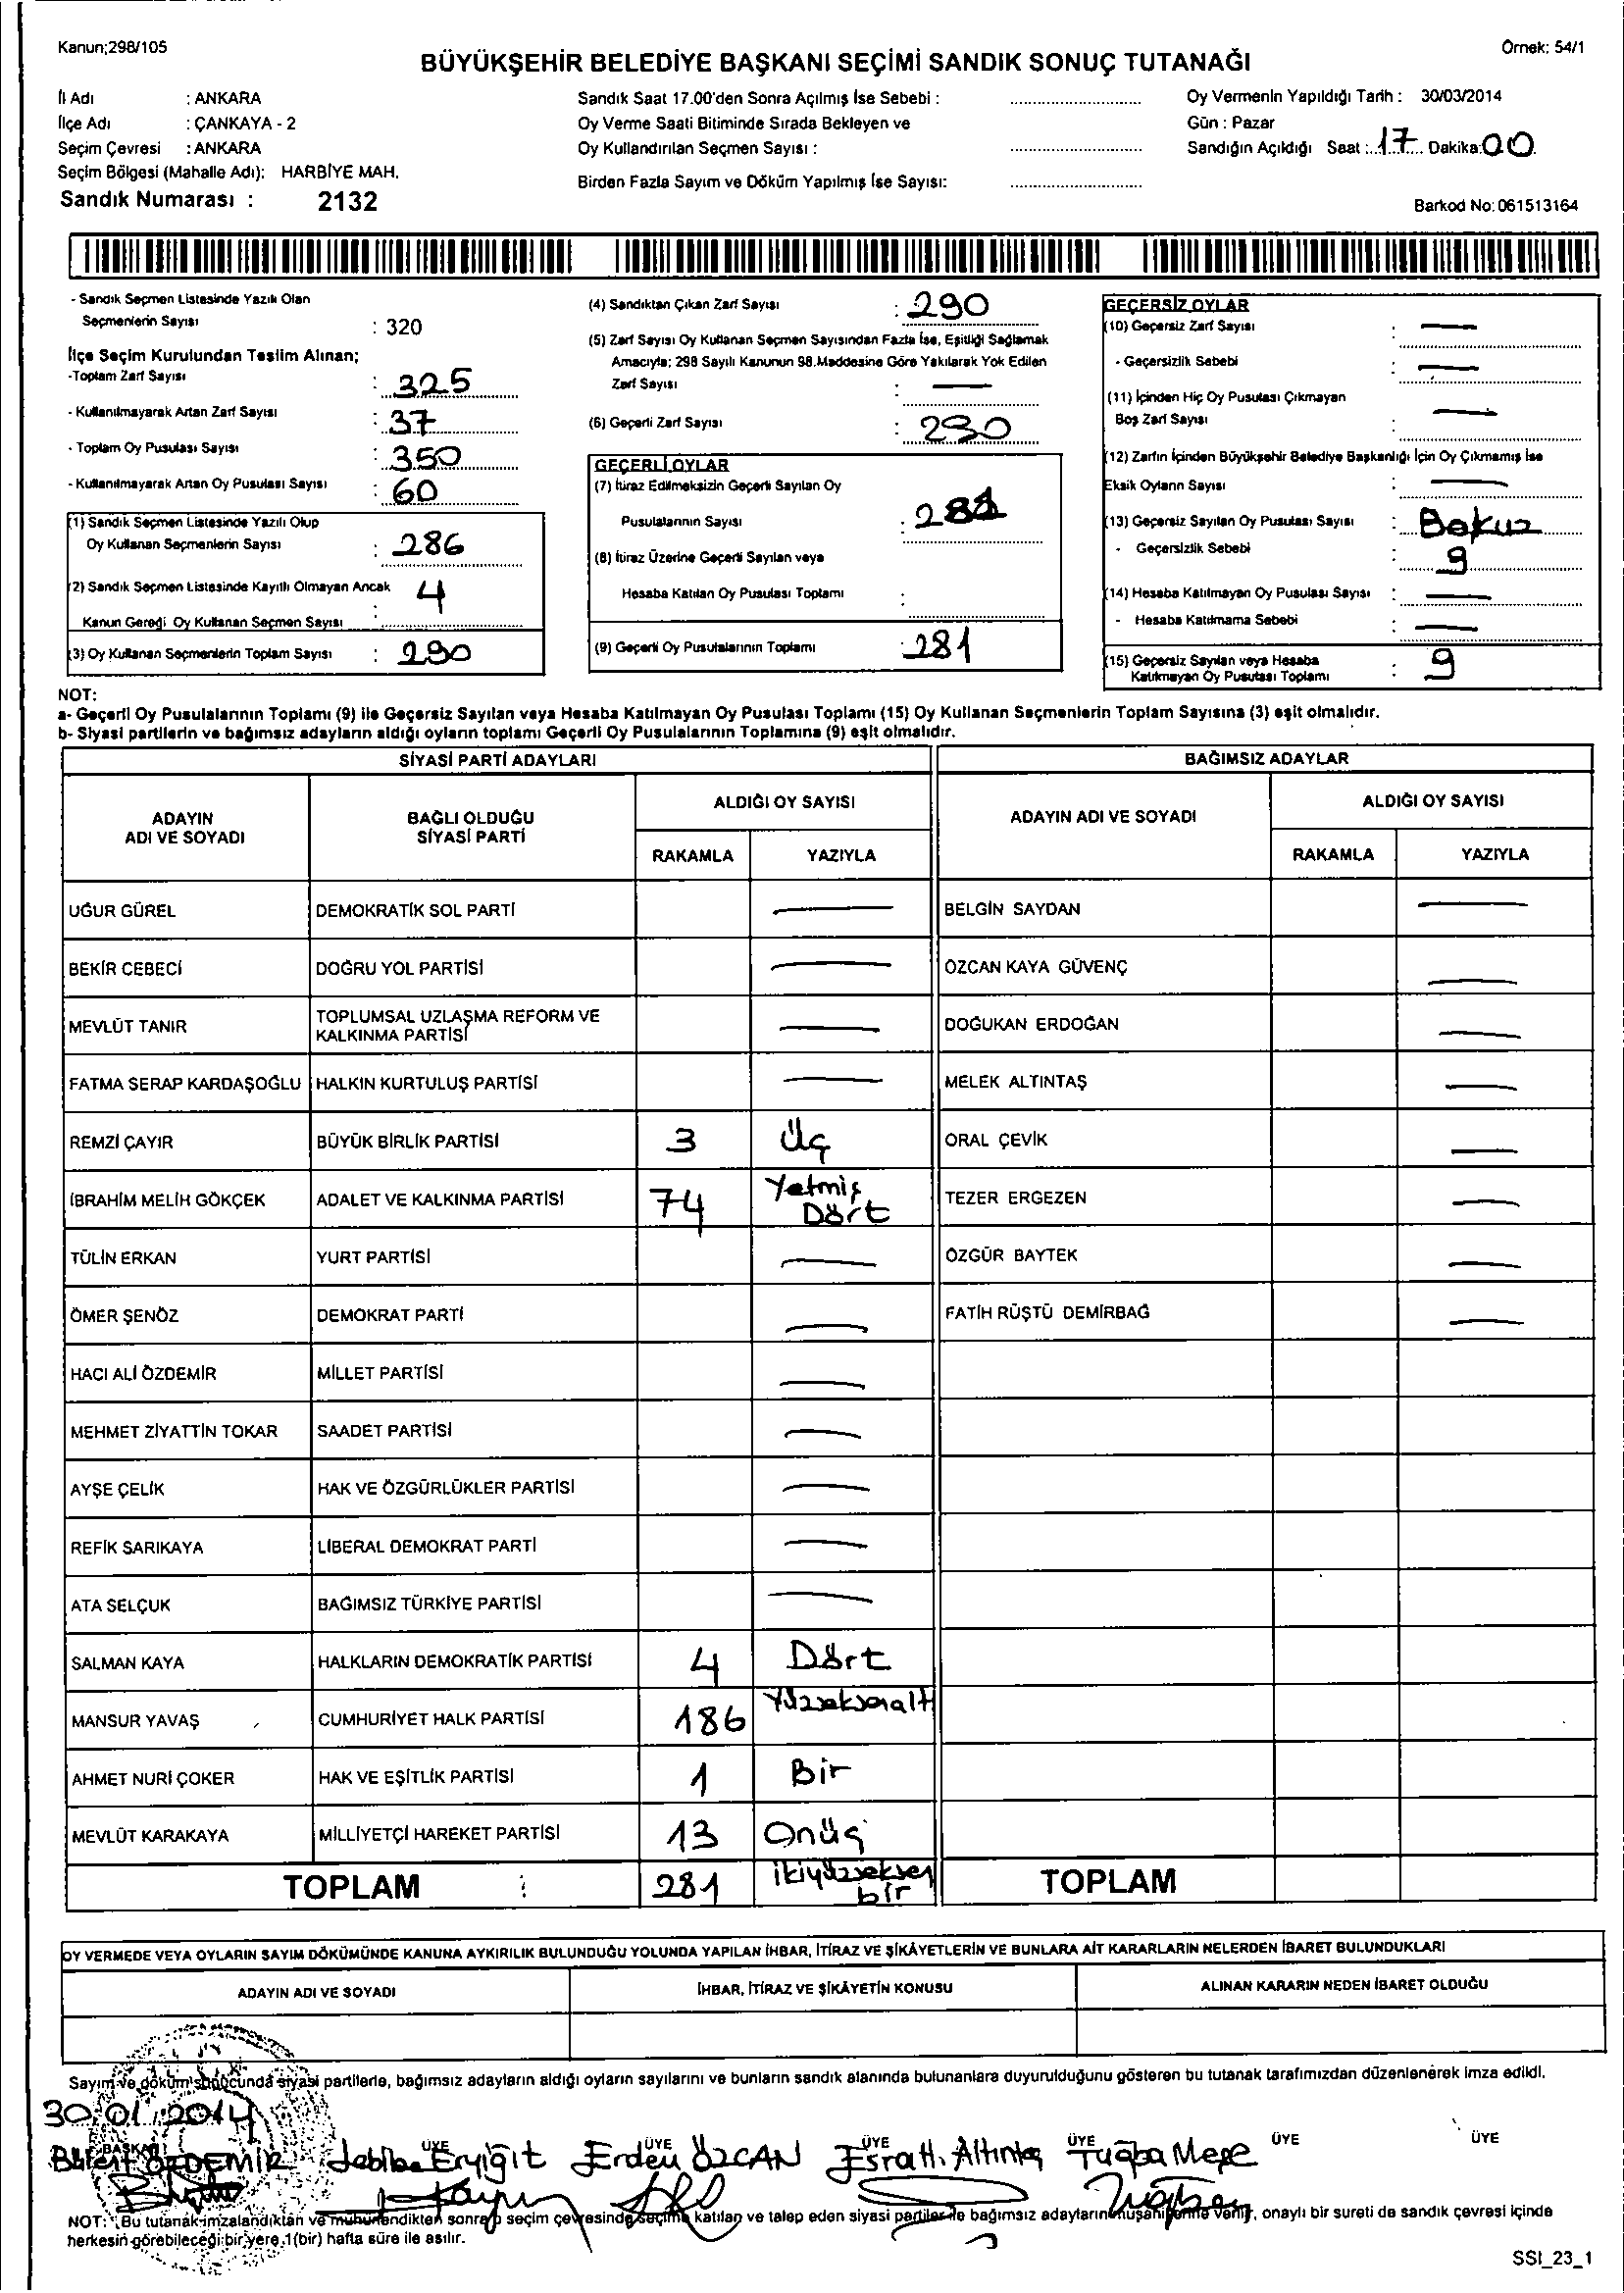 Kanun;298/105
Örnek: 54/1
BÜYÜKŞEHİR BELEDİYE BAŞKANI SEÇİMİ SANDIK SONUÇ TUTANAĞI
İl Adı : ANKARA
İlçe Adı : ÇANKAYA - 2
Seçim Çevresi : ANKARA
Seçim Bölgesi (Mahalle Adı): HARBİYE MAH.
Sandık Numarası : 2132
Sandık Saat 17.00'den Sonra Açılmış İse Sebebi :
Oy Verme Saati Bitiminde Sırada Bekleyen ve
Oy Kullandırılan Seçmen Sayısı :
Birden Fazla Sayım ve Döküm Yapılmış İse Sayısı:
Oy Vermenin Yapıldığı Tarih : 30/03/2014
Gün : Pazar
Sandığın Açıldığı Saat : 17 Dakika: 00
Barkod No: 061513164
- Sandık Seçmen Listesinde Yazılı Olan
Seçmenlerin Sayısı : 320
İlçe Seçim Kurulundan Teslim Alınan;
-Toplam Zarf Sayısı : 325
- Kullanılmayarak Artan Zarf Sayısı : 37
- Toplam Oy Pusulası Sayısı : 350
- Kullanılmayarak Artan Oy Pusulası Sayısı : 60
(1) Sandık Seçmen Listesinde Yazılı Olup
Oy Kullanan Seçmenlerin Sayısı : 286
(2) Sandık Seçmen Listesinde Kayıtlı Olmayan Ancak
Kanun Gereği Oy Kullanan Seçmen Sayısı : 4
(3) Oy Kullanan Seçmenlerin Toplam Sayısı : 290
(4) Sandıktan Çıkan Zarf Sayısı : 290
(5) Zarf Sayısı Oy Kullanan Seçmen Sayısından Fazla İse, Eşitliği Sağlamak
Amacıyla; 298 Sayılı Kanunun 98.Maddesine Göre Yakılarak Yok Edilen
Zarf Sayısı : —
(6) Geçerli Zarf Sayısı : 290
GEÇERLİ OYLAR
(7) İtiraz Edilmeksizin Geçerli Sayılan Oy
Pusulalarının Sayısı : 281
(8) İtiraz Üzerine Geçerli Sayılan veya
Hesaba Katılan Oy Pusulası Toplamı :
(9) Geçerli Oy Pusulalarının Toplamı : 281
GEÇERSİZ OYLAR
(10) Geçersiz Zarf Sayısı : —
- Geçersizlik Sebebi : —
(11) İçinden Hiç Oy Pusulası Çıkmayan
Boş Zarf Sayısı : —
(12) Zarfın İçinden Büyükşehir Belediye Başkanlığı İçin Oy Çıkmamış İse
Eksik Oyların Sayısı : —
(13) Geçersiz Sayılan Oy Pusulası Sayısı :
- Geçersizlik Sebebi : 9
(14) Hesaba Katılmayan Oy Pusulası Sayısı : —
- Hesaba Katılmama Sebebi : —
(15) Geçersiz Sayılan veya Hesaba
Katılmayan Oy Pusulası Toplamı : 9
NOT:
a- Geçerli Oy Pusulalarının Toplamı (9) ile Geçersiz Sayılan veya Hesaba Katılmayan Oy Pusulası Toplamı (15) Oy Kullanan Seçmenlerin Toplam Sayısına (3) eşit olmalıdır.
b- Siyasi partilerin ve bağımsız adayların aldığı oyların toplamı Geçerli Oy Pusulalarının Toplamına (9) eşit olmalıdır.
SİYASİ PARTİ ADAYLARI BAĞIMSIZ ADAYLAR
ADAYIN ADI VE SOYADI
BAĞLI OLDUĞU SİYASİ PARTİ
ALDIĞI OY SAYISI
RAKAMLA YAZIYLA
ADAYIN ADI VE SOYADI
ALDIĞI OY SAYISI
RAKAMLA YAZIYLA
UĞUR GÜREL DEMOKRATİK SOL PARTİ — BELGİN SAYDAN —
BEKİR CEBECİ DOĞRU YOL PARTİSİ — ÖZCAN KAYA GÜVENÇ —
MEVLÜT TANIR TOPLUMSAL UZLAŞMA REFORM VE KALKINMA PARTİSİ — DOĞUKAN ERDOĞAN —
FATMA SERAP KARDAŞOĞLU HALKIN KURTULUŞ PARTİSİ — MELEK ALTINTAŞ —
REMZİ ÇAYIR BÜYÜK BİRLİK PARTİSİ 3 Üç ORAL ÇEVİK —
İBRAHİM MELİH GÖKÇEK ADALET VE KALKINMA PARTİSİ 74 Yetmiş Dört TEZER ERGEZEN —
TÜLİN ERKAN YURT PARTİSİ — ÖZGÜR BAYTEK —
ÖMER ŞENÖZ DEMOKRAT PARTİ — FATİH RÜŞTÜ DEMİRBAĞ —
HACI ALİ ÖZDEMİR MİLLET PARTİSİ —
MEHMET ZİYATTİN TOKAR SAADET PARTİSİ —
AYŞE ÇELİK HAK VE ÖZGÜRLÜKLER PARTİSİ —
REFİK SARIKAYA LİBERAL DEMOKRAT PARTİ —
ATA SELÇUK BAĞIMSIZ TÜRKİYE PARTİSİ —
SALMAN KAYA HALKLARIN DEMOKRATİK PARTİSİ 4 Dört
MANSUR YAVAŞ CUMHURİYET HALK PARTİSİ 186 Yüzseksenaltı
AHMET NURİ ÇOKER HAK VE EŞİTLİK PARTİSİ 1 Bir
MEVLÜT KARAKAYA MİLLİYETÇİ HAREKET PARTİSİ 13 Onüç
TOPLAM : 281 ikiyüzseksen bir TOPLAM
OY VERMEDE VEYA OYLARIN SAYIM DÖKÜMÜNDE KANUNA AYKIRILIK BULUNDUĞU YOLUNDA YAPILAN İHBAR, İTİRAZ VE ŞİKÂYETLERİN VE BUNLARA AİT KARARLARIN NELERDEN İBARET BULUNDUKLARI
ADAYIN ADI VE SOYADI İHBAR, İTİRAZ VE ŞİKÂYETİN KONUSU ALINAN KARARIN NEDEN İBARET OLDUĞU
Sayım ve döküm sonucunda siyasi partilerle, bağımsız adayların aldığı oyların sayılarını ve bunların sandık alanında bulunanlara duyurulduğunu gösteren bu tutanak tarafımızdan düzenlenerek imza edildi.
30.01.2014
BAŞKAN ÜYE ÜYE ÜYE ÜYE ÜYE ÜYE
Bülent ÖZDEMİR Eryiğit Erden ÖZCAN Esra H. Altıntaş Tuğba Meşe
NOT: Bu tutanak imzalandıktan ve mühürlendikten sonra seçim çevresinde seçime katılan ve talep eden siyasi partiler ile bağımsız adayların müşahitlerine verilir, onaylı bir sureti de sandık çevresi içinde
herkesin görebileceği bir yere 1(bir) hafta süre ile asılır.
SSI_23_1